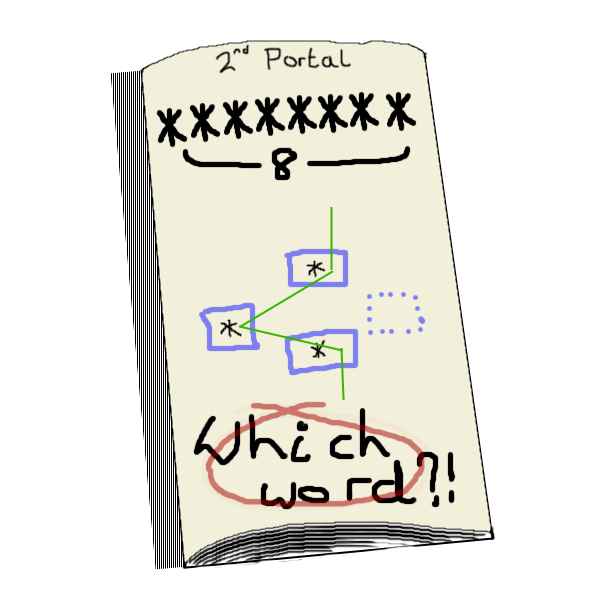 2nd Portal
********
8
*
*
*
Which
word?!